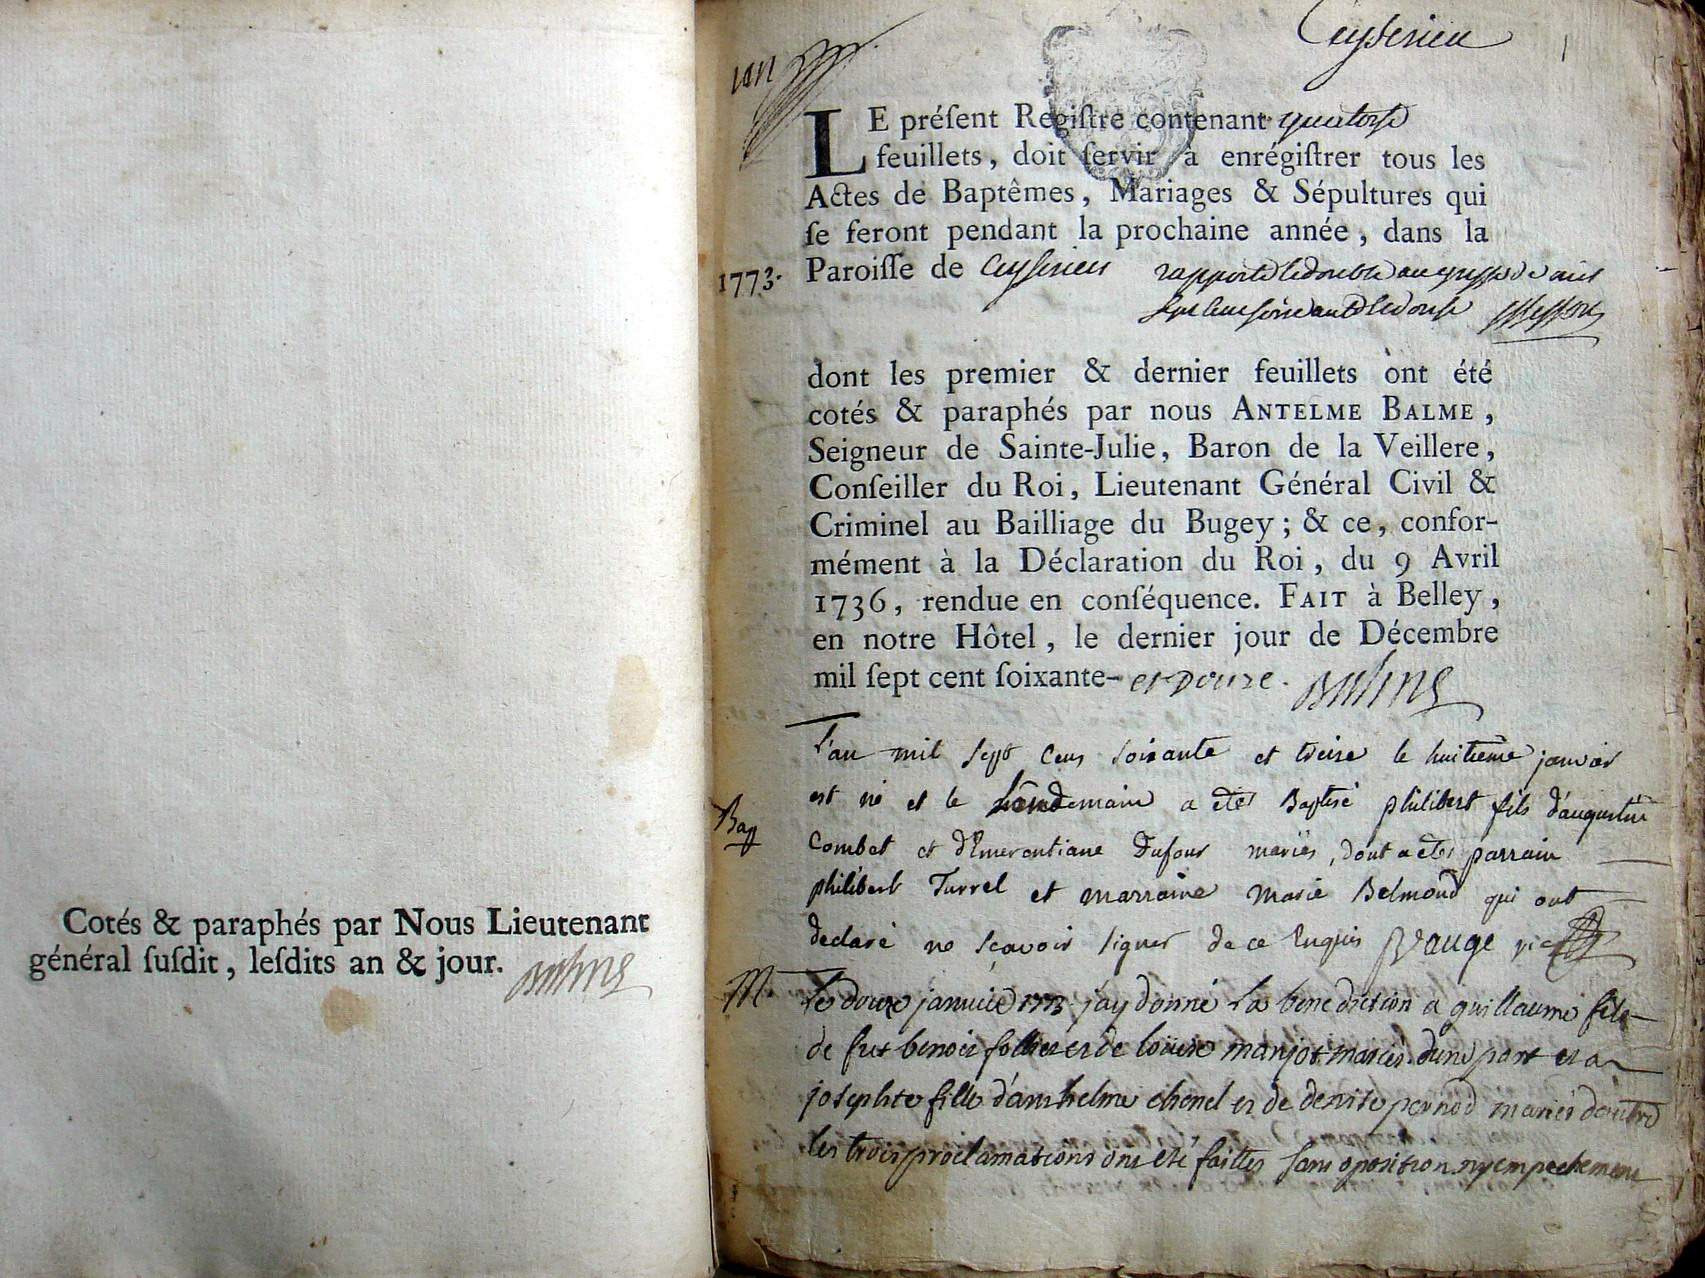 Cotés & paraphés par Nous Lieutenant
général ſuſdit, leſdits an & jour.
Balme
Ceyserieu
1
LE préſent Regiſtre contenant quatorse
feuillets, doit ſervir à enrégiſtrer tous les
Actes de Baptêmes, Mariages & Sépultures qui
ſe feront pendant la prochaine année, dans la
1773. Paroiſſe de Ceyserieu rapporté le double au greffe
dont les premier & dernier feuillets ont été
cotés & paraphés par nous ANTELME BALME,
Seigneur de Sainte-Julie, Baron de la Veillere,
Conſeiller du Roi, Lieutenant Général Civil &
Criminel au Bailliage du Bugey; & ce, confor-
mément à la Déclaration du Roi, du 9 Avril
1736, rendue en conſéquence. FAIT à Belley,
en notre Hôtel, le dernier jour de Décembre
mil ſept cent ſoixante- et Douze. Balme
L'an mil sept cens soixante et treize le huitième janvier
est né et le lendemain a eté Baptisé philibert fils d'augustin
Bap Combet et d'Emerentiane Dufour mariés, dont a eté parrain
philibert Turrel et marraine marie Belmond qui ont
declaré ne sçavoir signer de ce Enquis Vauge
M. Le douze janvier 1773 j'ay donné La benediction a guillaume fils
de fut benoit follier et de louise manjot mariés d'une part et a
josephte fille d'anthelme chenel et de denise pernod mariés d'autre
les trois proclamations ont eté faittes sans oposition ny empechement